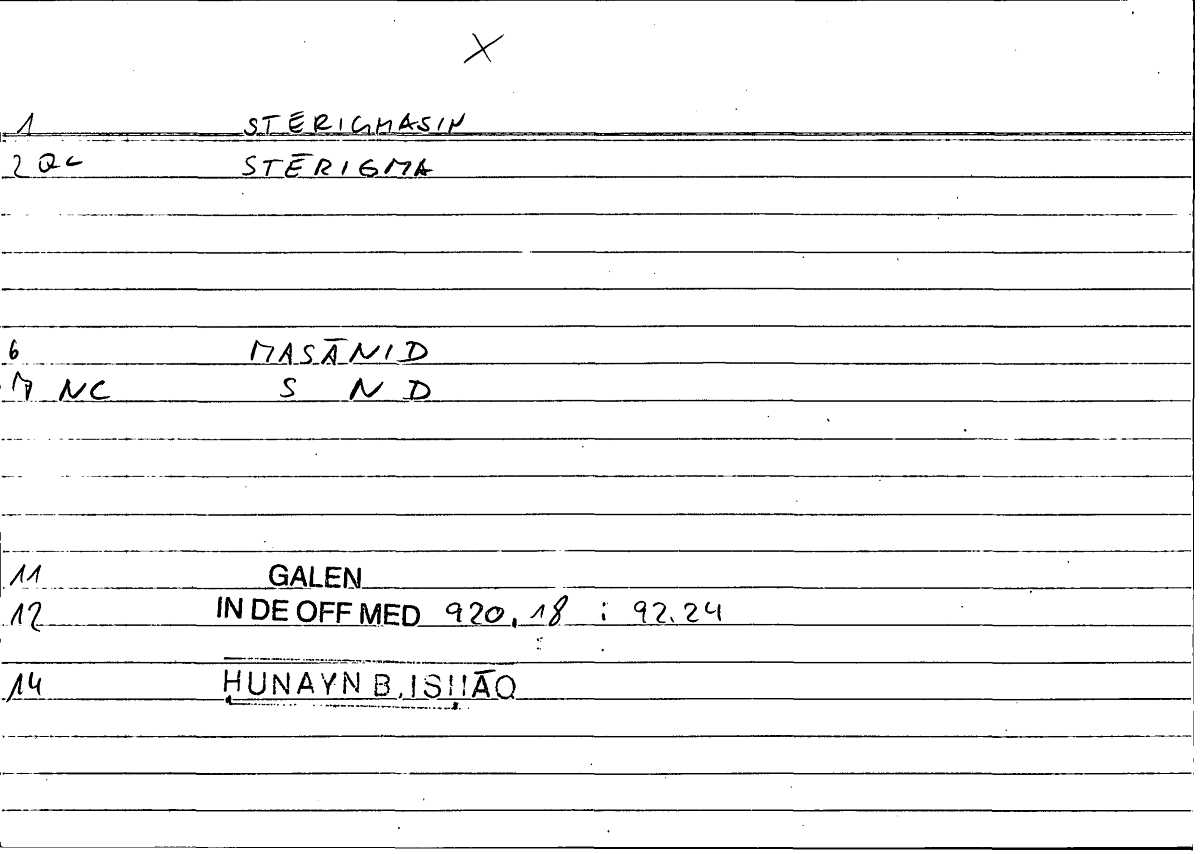 X
1 STĒRIGMASIN
2 QC STĒRIGMA
6 MASĀNID
7 NC S N D
11 GALEN
12 IN DE OFF MED 920,18 ; 92.24
14 HUNAYN B. ISḤĀQ